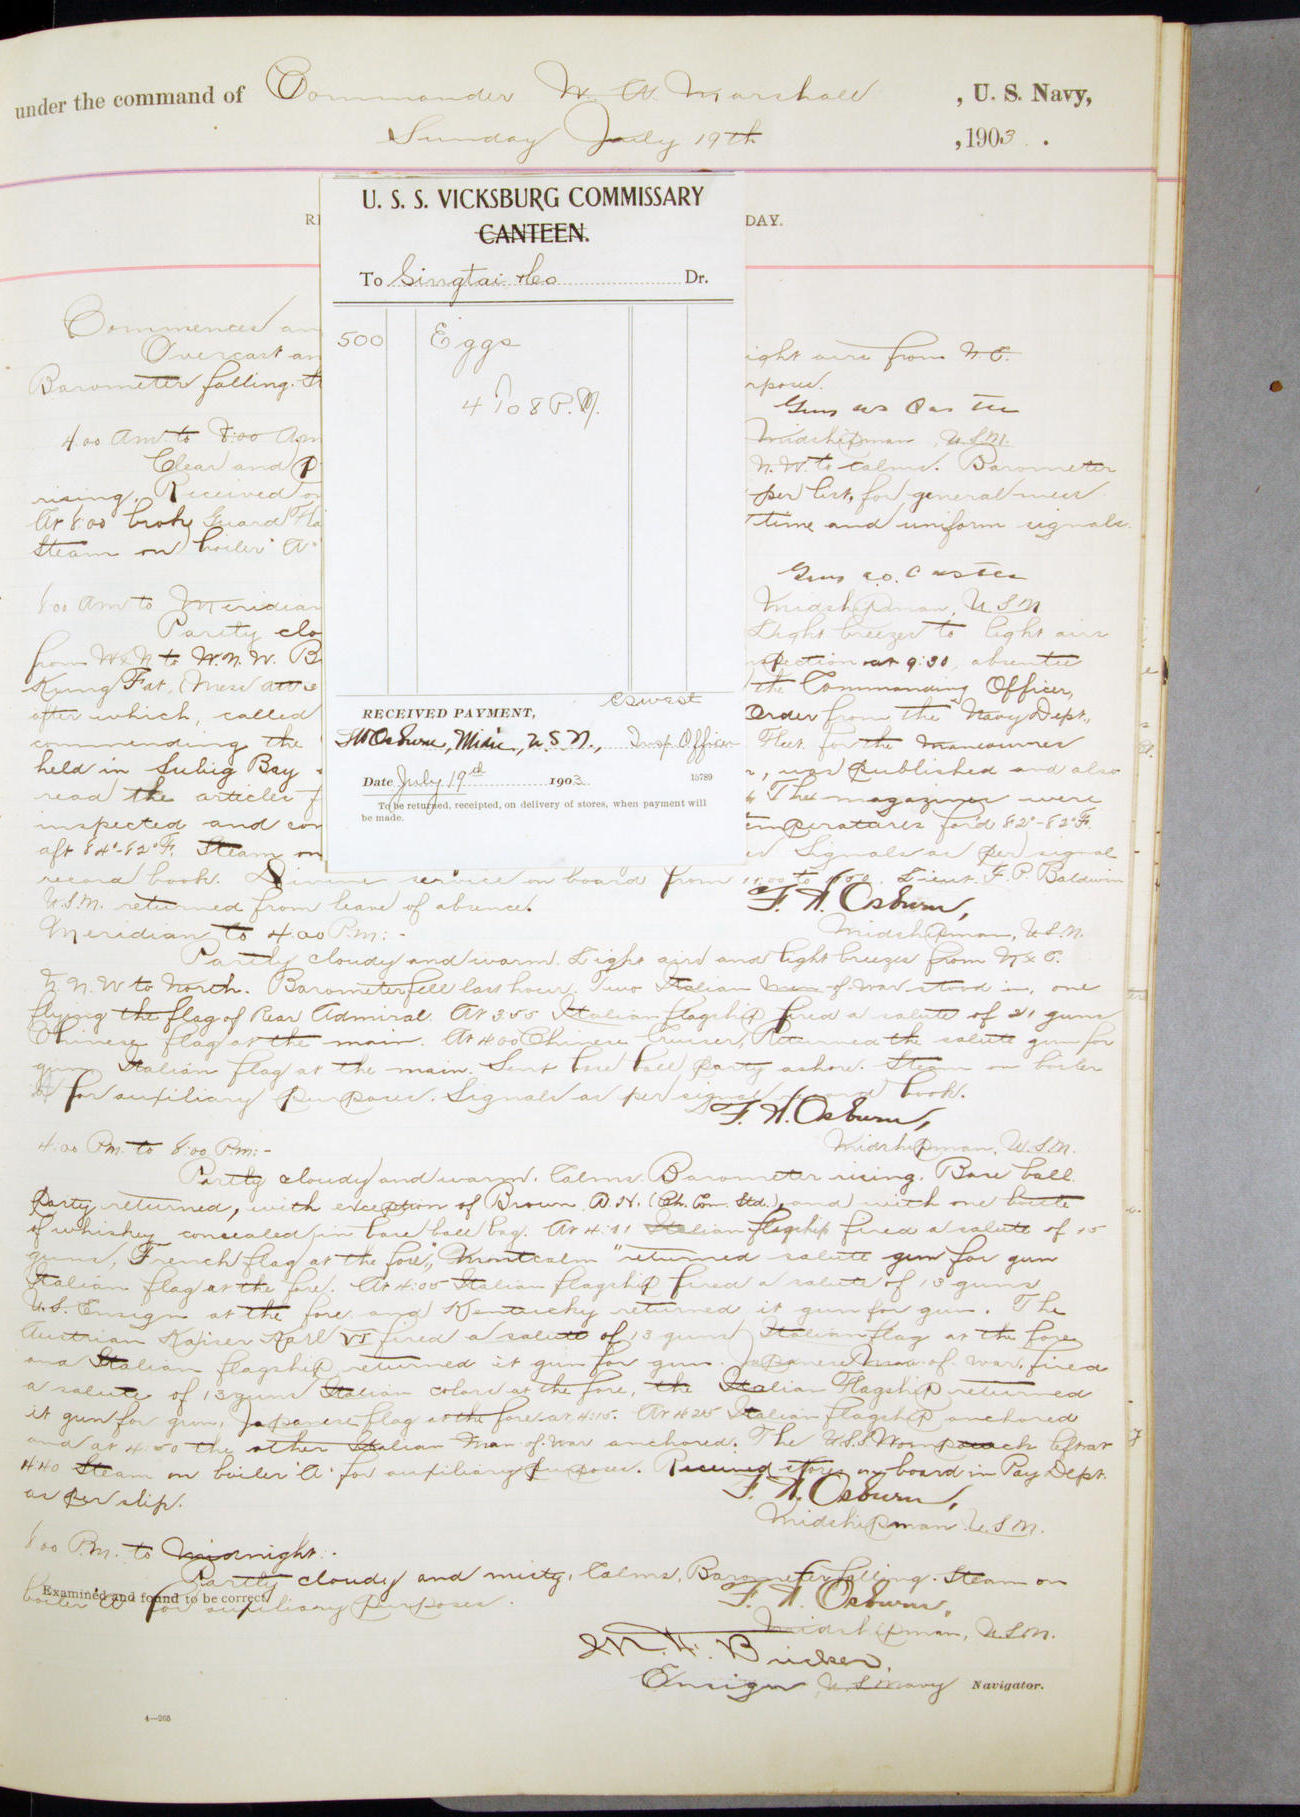 under the command of Commander W. A. Marshall, U. S. Navy,
Sunday July 19th, 1903.
U. S. S. VICKSBURG COMMISSARY
CANTEEN.
To Singtai & Co Dr.
500 Eggs
4 To 8 P.M.
RECEIVED PAYMENT,
FA Osburn, Midn, U.S.N., Insp. Officer
Date July 19th 1903.
15789
To be returned, receipted, on delivery of stores, when payment will
be made.
DAY.
Commences an
Overcast an
ight airs from N.E.
Barometer falling. St
rposes.
Midshipman, U.S.N.
4.00 Am to 8:00 Am
Clear and
N.W. to calms. Barometer
rising. Received
per list, for general mess
At 8:00 broke Guard Fla
time and uniform signals.
Steam on boiler "A"
Midshipman, U.S.N
8.00 Am to Meridian
Partly clo
Light breezes to light airs
from WxN to W.N.W. B
spection at 9:30, absentee
Kung Fat, (Mess
the Commanding Officer,
after which, called
Order from the Navy Dept.,
commending the
Fleet for the maneuvers
held in Subig Bay
, was published and also
read the articles f
The magazines were
inspected and con
emperatures for'd 82°-82°F.
aft 84°-82°F. Steam on
Signals as per signal
record book. Divine service on board from Lieut. F. P. Baldwin
U.S.N. returned from leave of absence.
F. A. Osburn,
Midshipman, U.S.N.
Meridian to 4:00 P.M:-
Partly cloudy and warm. Light airs and light breezes from NxE.
N.N.W to North. Barometer fell last hour. Two Italian men-of-war stood in, one
flying the flag of Rear Admiral. At 3.55 Italian flagship fired a salute of 21 guns
Chinese flag at the main. At 4.00 Chinese Cruiser, Returned the salute gun for
gun Italian flag at the main. Sent base ball party ashore. Steam on boiler
for auxiliary purposes. Signals as per signal record book.
F. A. Osburn,
Midshipman, U.S.N.
4:00 P.m. to 8:00 P.m:-
Partly cloudy and warm. Calms. Barometer rising. Base ball
party returned, with exception of Brown, D.H. (Ch. Com. Std.), and with one bottle
of whiskey concealed in base ball bag. At 4:11 Italian flagship fired a salute of 15
guns, French flag at the fore, "Montcalm" returned salute gun for gun
Italian flag at the fore. At 4:05 Italian flagship fired a salute of 13 guns
U.S. Ensign at the fore and Kentucky returned it gun for gun. The
Austrian Kaiser Karl VI fired a salute of 13 guns Italian flag at the fore
and Italian flagship returned it gun for gun. Japanese man-of-war fired
a salute of 13 guns Italian colors at the fore, the Italian Flagship returned
it gun for gun, Japanese flag at the fore at 4:15. At 4:25 Italian flagship anchored
and at 4:50 the other Italian man-of-war anchored. The U.S.S. Wompatuck left at
4:40 Steam on boiler "A" for auxiliary purposes. Received stores on board in Pay Dept.
as per slip.
F. A. Osburn,
Midshipman U.S.N.
8.00 P.M. to Midnight:-
Partly cloudy and misty, Calms, Barometer falling. Steam on
boiler "A" for auxiliary purposes.
F. A. Osburn,
Midshipman, U.S.N.
Examined and found to be correct.
Ensign U.S. Navy Navigator.
4—265